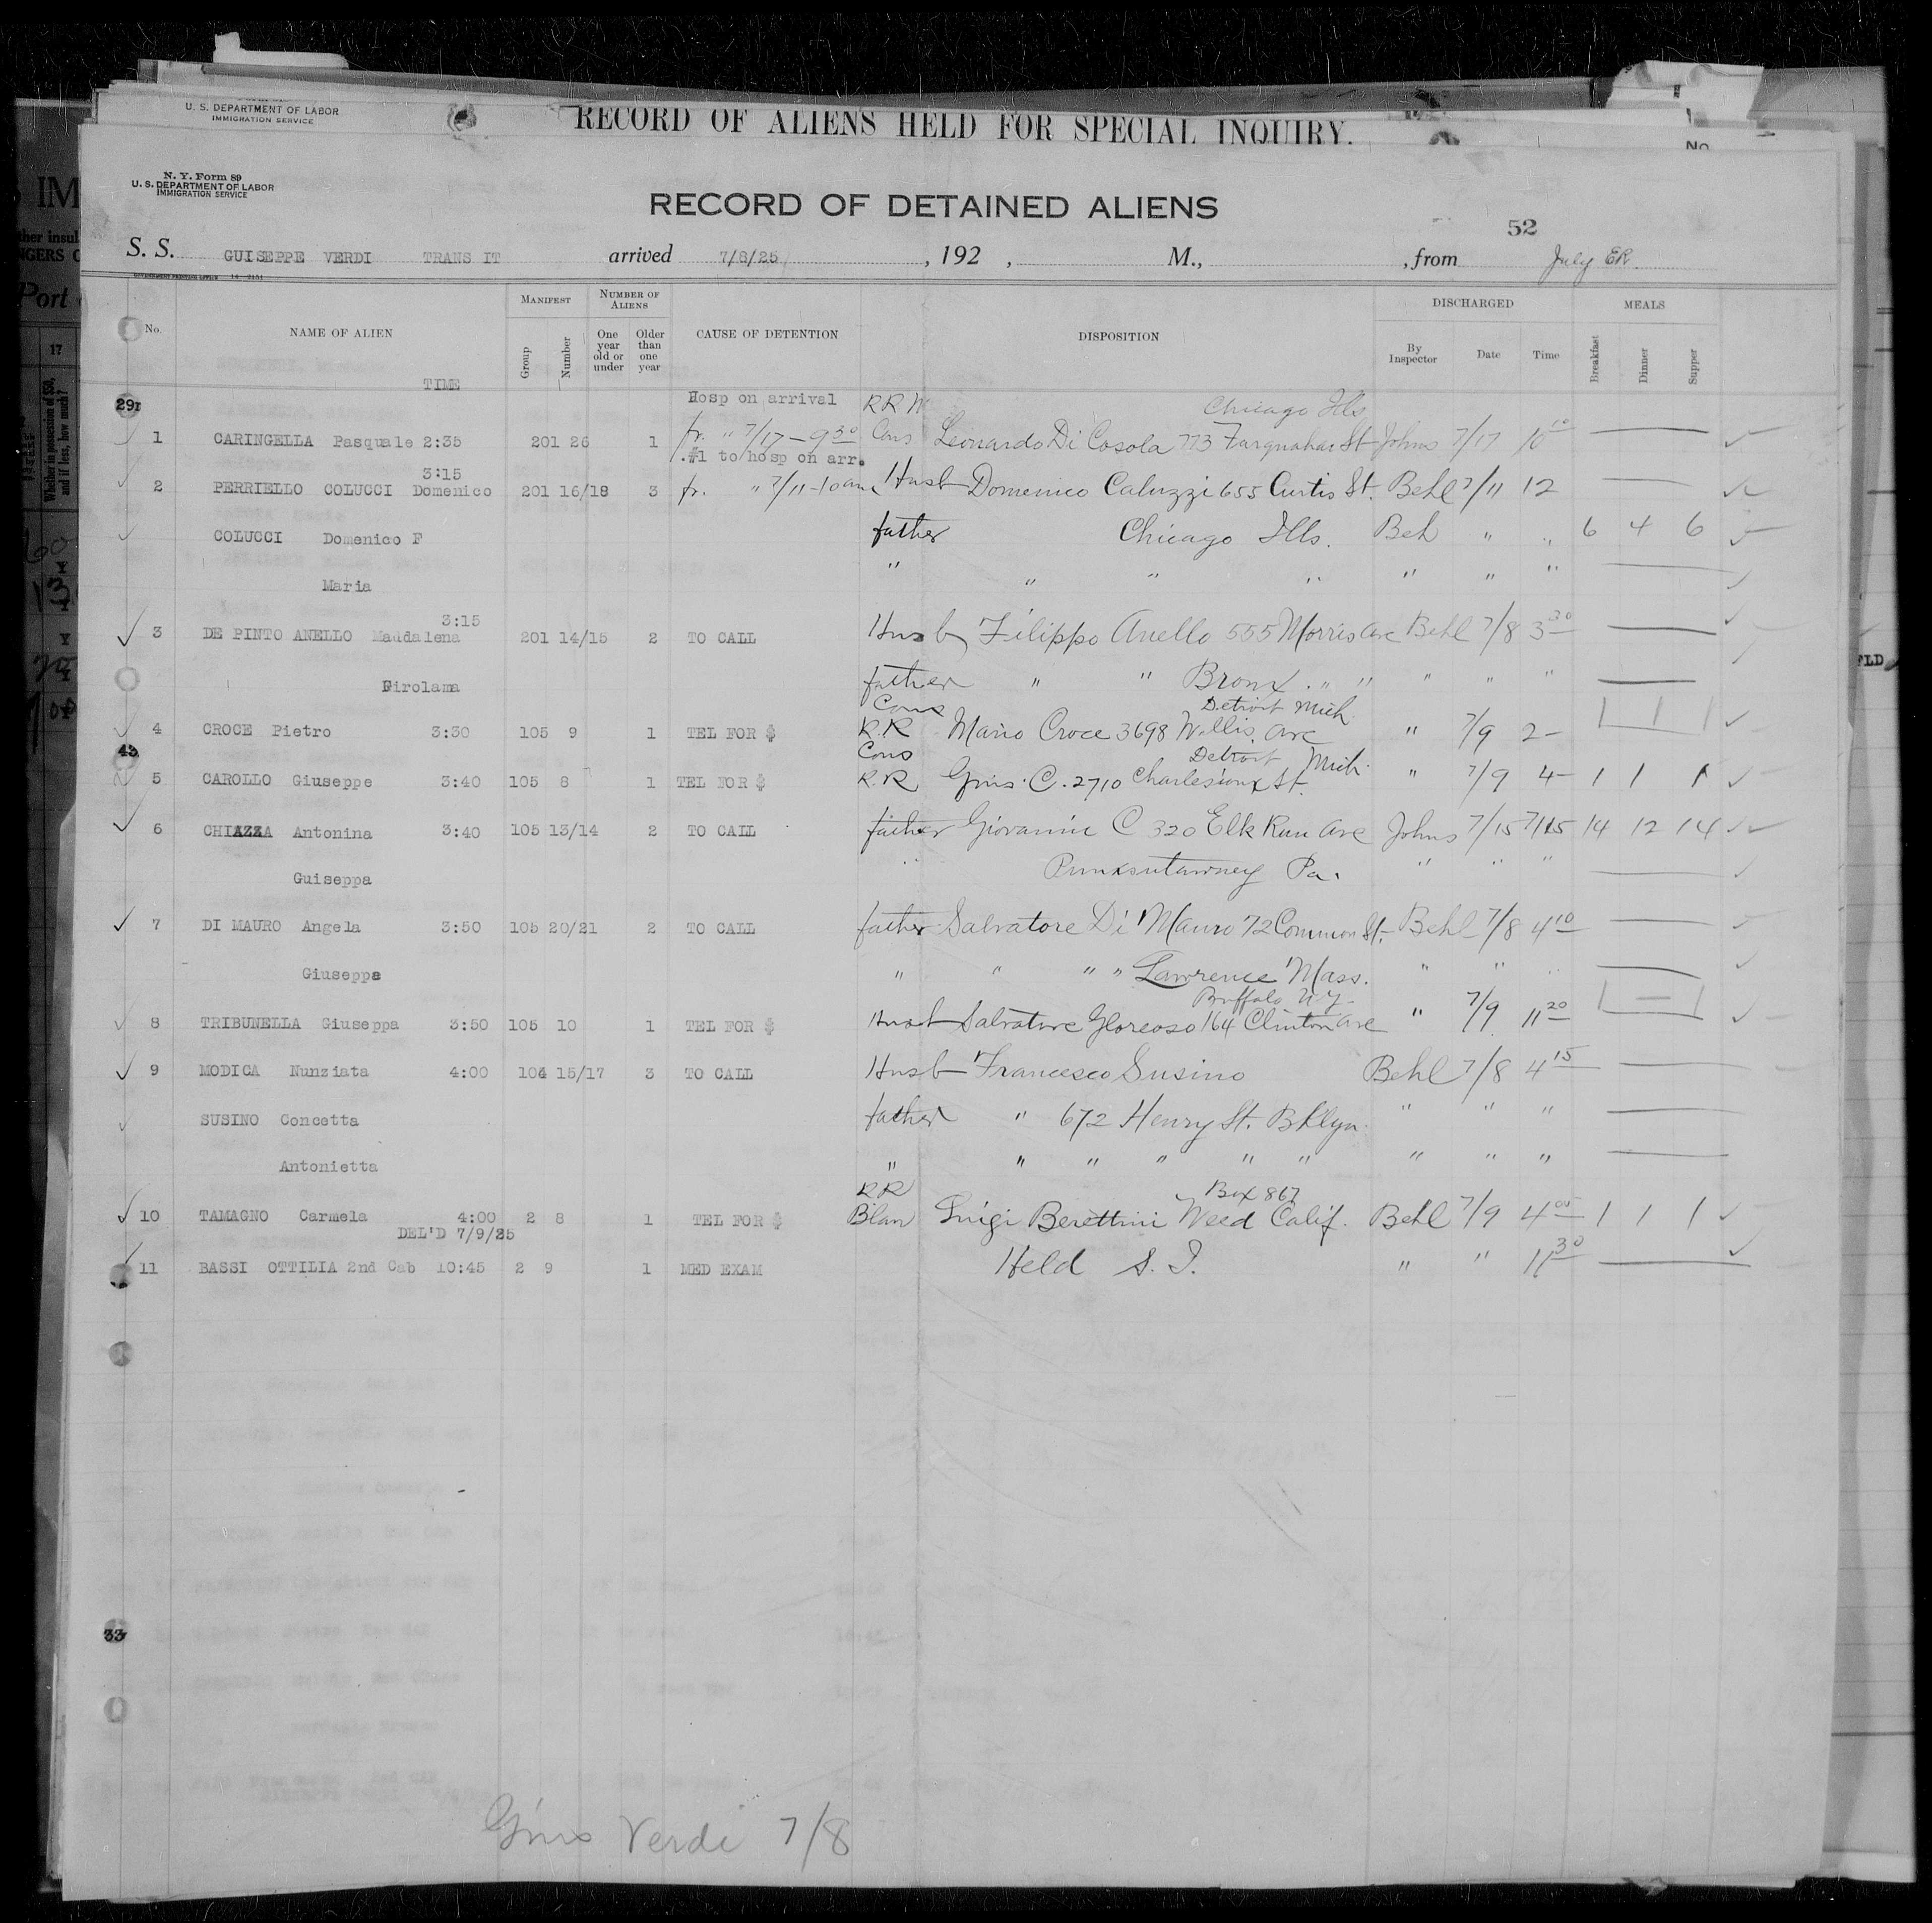 U. S. DEPARTMENT OF LABOR
IMMIGRATION SERVICE
RECORD OF ALIENS HELD FOR SPECIAL INQUIRY.
No.
N. Y. Form 89
U. S. DEPARTMENT OF LABOR
IMMIGRATION SERVICE
RECORD OF DETAINED ALIENS
52
S. S. GUISEPPE VERDI TRANS IT arrived 7/8/25 , 192 , M., , from July ER
No. NAME OF ALIEN TIME MANIFEST Group Number NUMBER OF ALIENS One year old or under Older than one year CAUSE OF DETENTION DISPOSITION DISCHARGED By Inspector Date Time MEALS Breakfast Dinner Supper
291 Hosp on arrival RR Chicago Ills
1 CARINGELLA Pasquale 2:35 201 26 1 fr. " 7/17 - 9 30 Cons Leonardo Di Cosola 773 Farquahar St Johns 7/17 10 10
3:15 .#1 to hosp on arr.
2 PERRIELLO COLUCCI Domenico 201 16/18 3 fr. " 7/11-10 am Husb Domenico Caluzzi 655 Curtis St. Behl 7/11 12
COLUCCI Domenico F father Chicago Ills. Beh " " 6 4 6
Maria " " " " " " "
3:15
3 DE PINTO ANELLO Maddalena 201 14/15 2 TO CALL Husb Filippo Anello 555 Morris Ave Behl 7/8 3 30
Girolama father " " Bronx . " " " " "
Cons Detroit Mich.
4 CROCE Pietro 3:30 105 9 1 TEL FOR $ R.R Mario Croce 3698 Willis Ave " 7/9 2 -
43 Cons Detroit Mich.
5 CAROLLO Giuseppe 3:40 105 8 1 TEL FOR $ R.R Gius. C. 2710 St. " 7/9 4- 1 1 1
6 CHIAZZA Antonina 3:40 105 13/14 2 TO CALL father Giovanni C 320 Elk Run Ave Johns 7/15 7/15 14 12 14
Guiseppa " Punxsutawney Pa. " " "
7 DI MAURO Angela 3:50 105 20/21 2 TO CALL father Salvatore Di Mauro 72 Common St. Behl 7/8 4 10
Giuseppa " " " " Lawrence Mass. " " "
Buffalo N.Y.
8 TRIBUNELLA Giuseppa 3:50 105 10 1 TEL FOR $ Husb Salvatore Gloreoso 164 Clinton Ave " 7/9 11 20
9 MODICA Nunziata 4:00 104 15/17 3 TO CALL Husb Francesco Susino Behl 7/8 4 15
SUSINO Concetta father " 672 Henry St. Bklyn. " " "
Antonietta " " " " " " " " "
RR Box 867
10 TAMAGNO Carmela 4:00 2 8 1 TEL FOR $ Luigi Berettini Weed Calif. Behl 7/9 4 05 1 1 1
DEL'D 7/9/25
11 BASSI OTTILIA 2nd Cab 10:45 2 9 1 MED EXAM Held S. I. " " 11 30
33
Gius Verdi 7/8